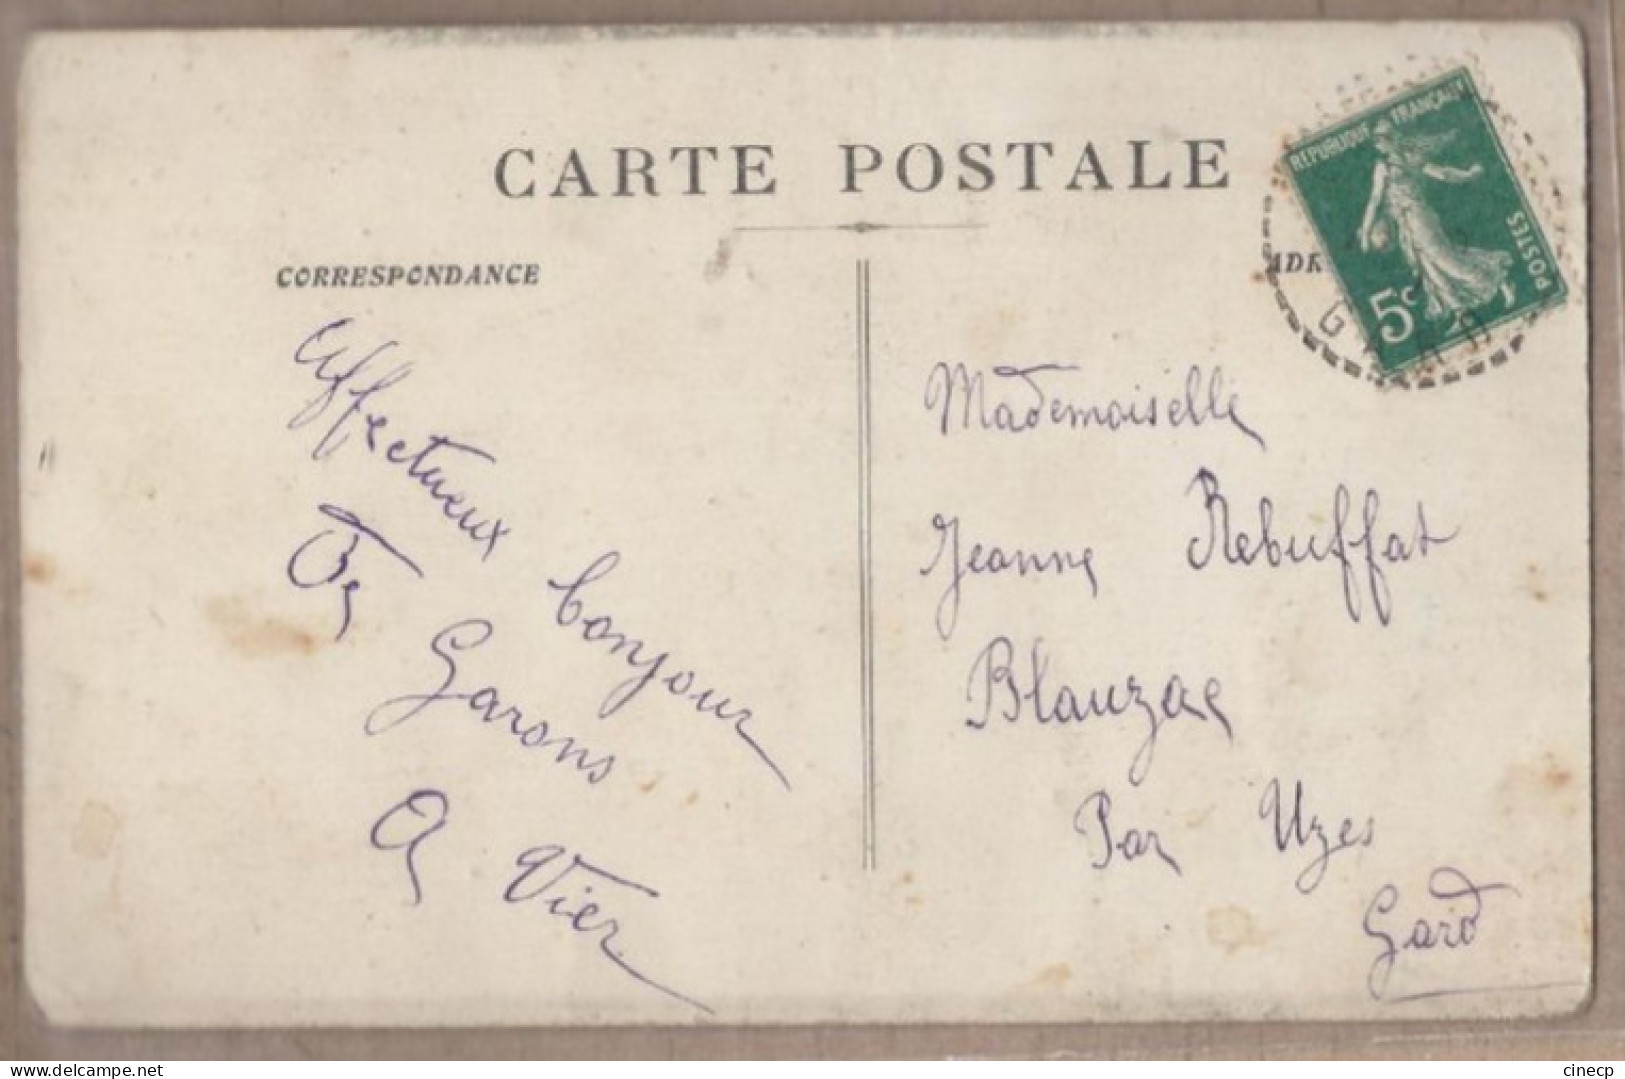 CARTE POSTALE
CORRESPONDANCE
Affectueux bonjour
De Garons
A Vier
ADR
RÉPUBLIQUE FRANÇAISE
POSTES
5c
GARD
Mademoiselle
Jeanne Rebuffat
Blauzac
Par Uzes
Gard
cinecp